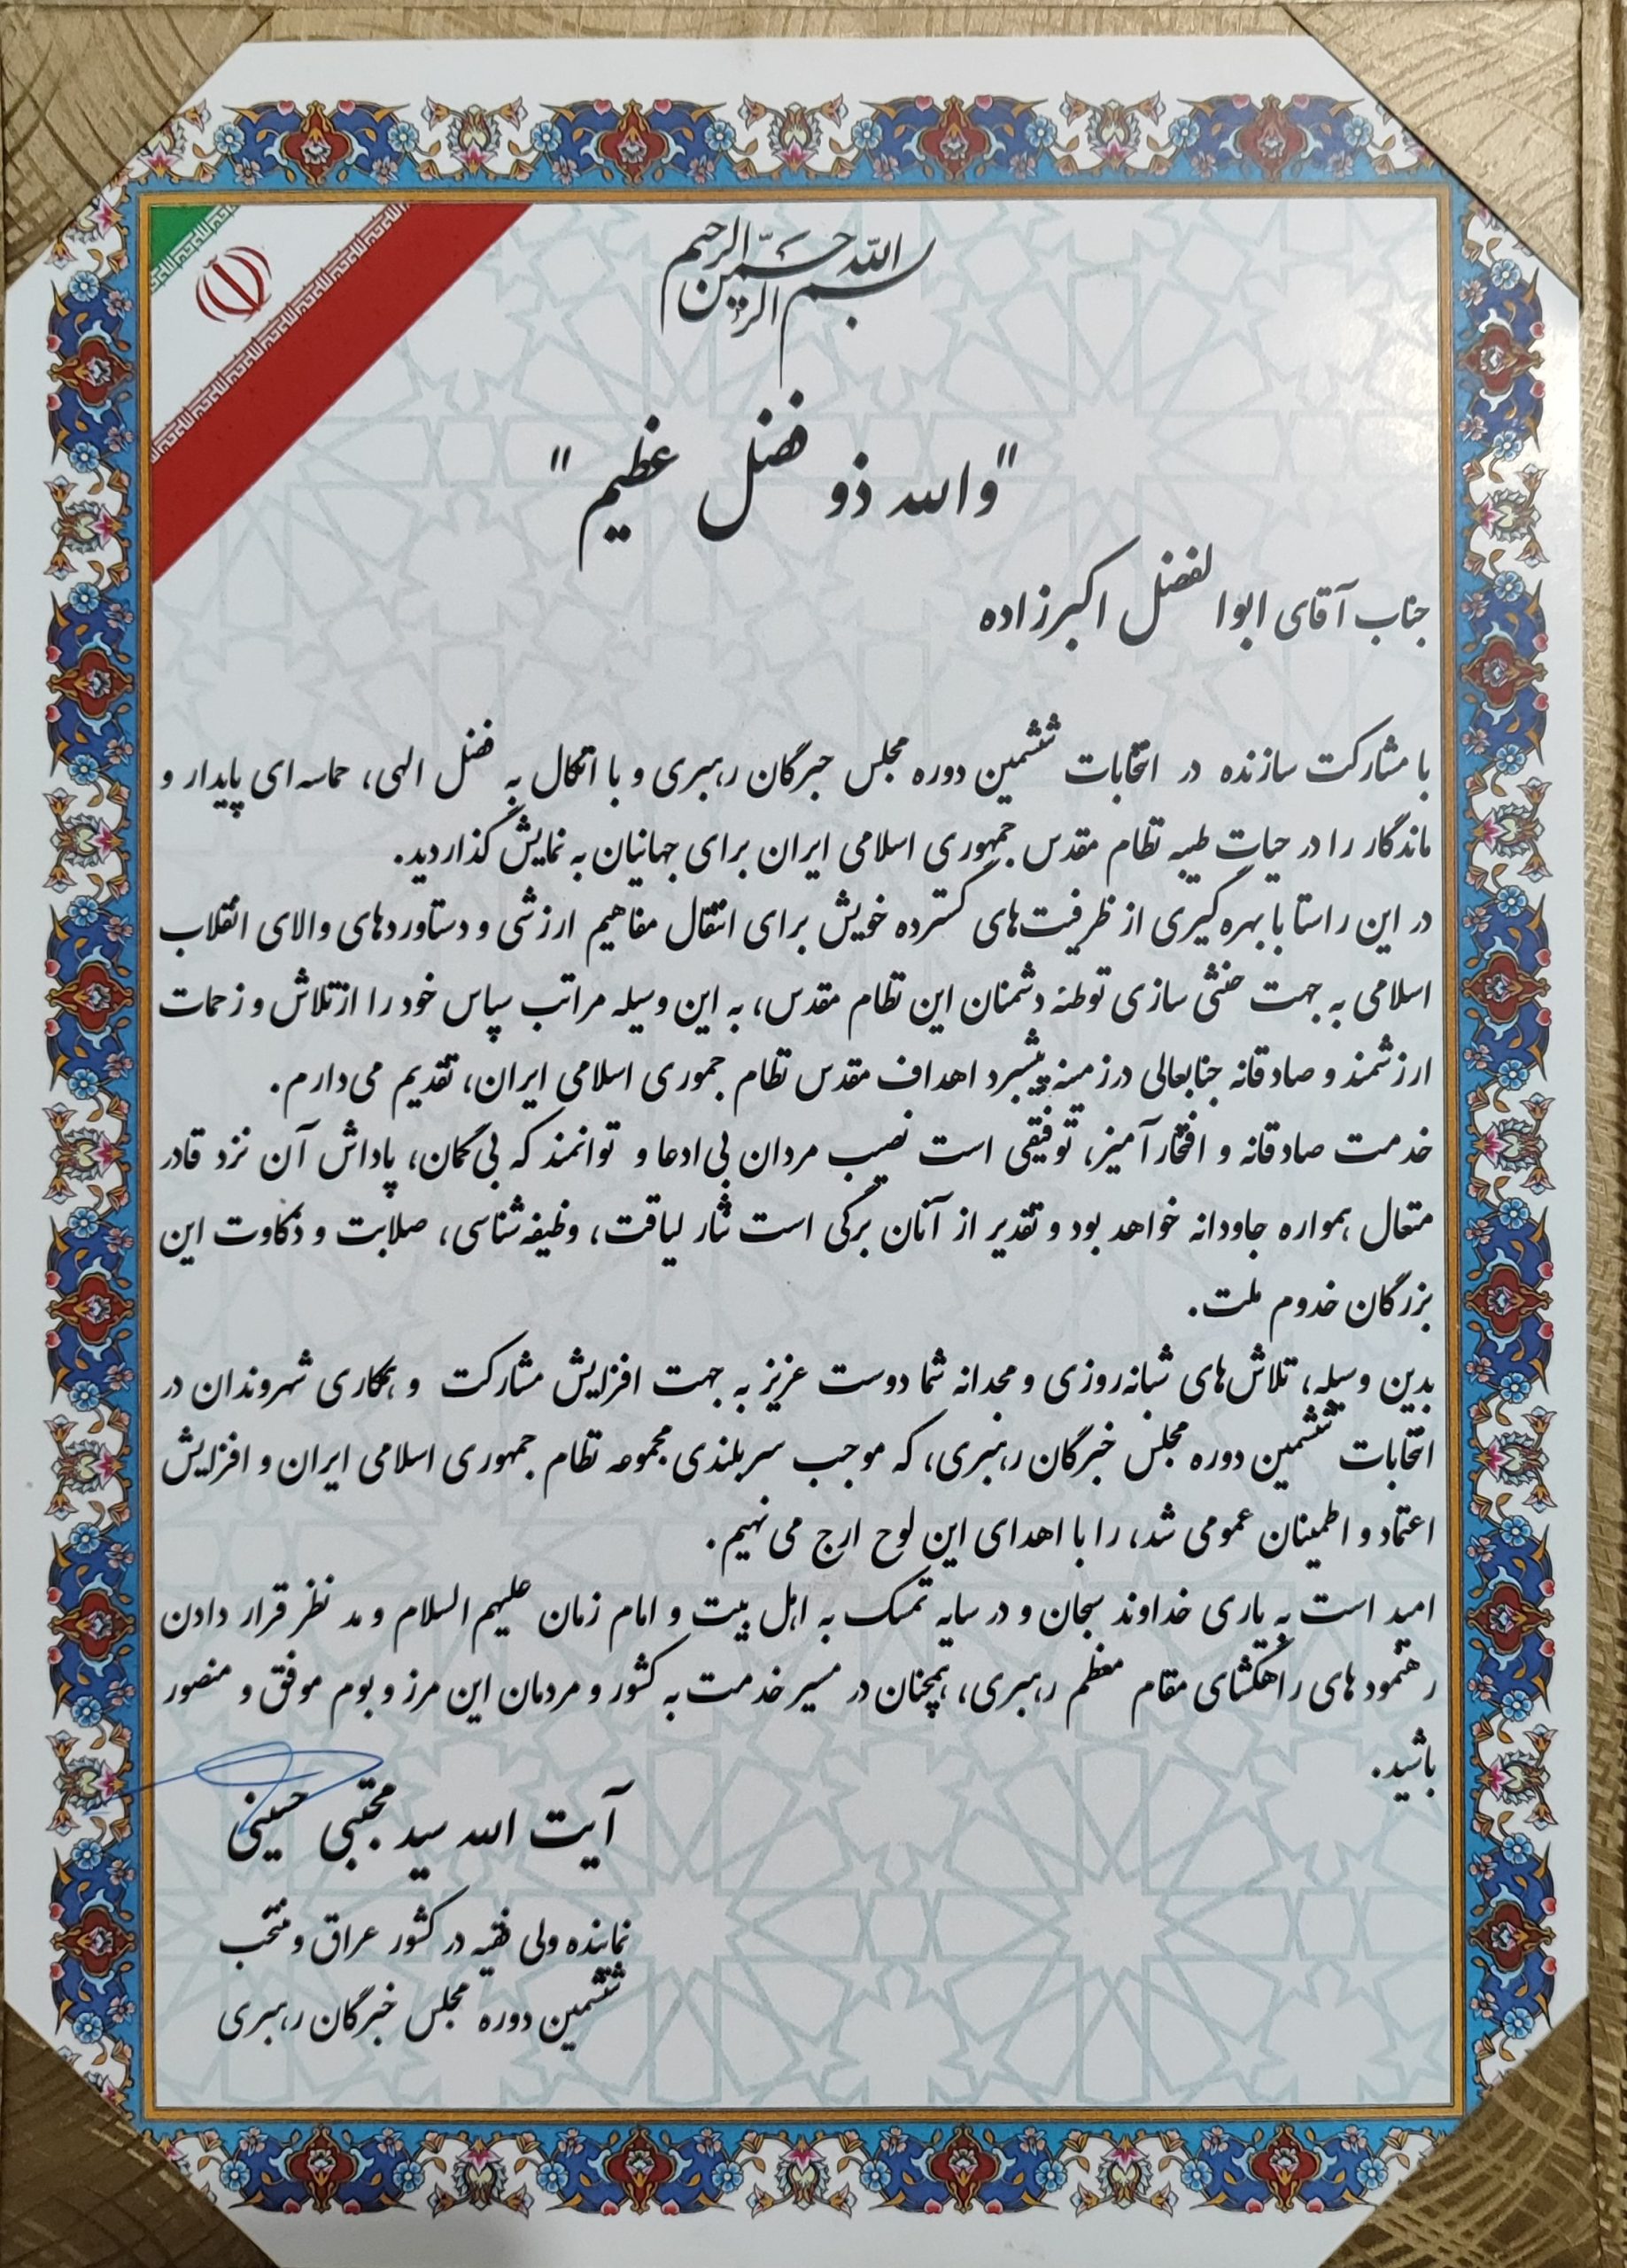 بسم الله الرحمن الرحیم
"والله ذو فضل عظیم"
جناب آقای ابوالفضل اکبرزاده
با مشارکت سازنده در انتخابات ششمین دوره مجلس خبرگان رهبری و با اتکال به فضل الهی، حماسه‌ای پایدار و
ماندگار را در حیات طیبه نظام مقدس جمهوری اسلامی ایران برای جهانیان به نمایش گذاردید.
در این راستا با بهره گیری از ظرفیت‌های گسترده خویش برای انتقال مفاهیم ارزشی و دستاوردهای والای انقلاب
اسلامی به جهت خنثی سازی توطئه دشمنان این نظام مقدس، به این وسیله مراتب سپاس خود را از تلاش و زحمات
ارزشمند و صادقانه جنابعالی در زمینه پیشبرد اهداف مقدس نظام جموری اسلامی ایران، تقدیم می‌دارم.
خدمت صادقانه و افتخار آمیز، توفیقی است نصیب مردان بی‌ادعا و توانمند که بی‌گمان، پاداش آن نزد قادر
متعال همواره جاودانه خواهد بود و تقدیر از آنان برگی است نثار لیاقت، وظیفه‌شناسی، صلابت و ذکاوت این
بزرگان خدوم ملت.
بدین وسیله، تلاش‌های شبانه‌روزی و مجدانه شما دوست عزیز به جهت افزایش مشارکت و همکاری شهروندان در
انتخابات ششمین دوره مجلس خبرگان رهبری، که موجب سربلندی مجموعه نظام جمهوری اسلامی ایران و افزایش
اعتماد و اطمینان عمومی شد، را با اهدای این لوح ارج می‌نهیم.
امید است به یاری خداوند سبحان و در سایه تمسک به اهل بیت و امام زمان علیهم السلام و مد نظر قرار دادن
رهنمودهای راهگشای مقام معظم رهبری، همچنان در مسیر خدمت به کشور و مردمان این مرز و بوم موفق و منصور
باشید.
آیت الله سید مجتبی حسینی
نماینده ولی فقیه در کشور عراق و منتخب
ششمین دوره مجلس خبرگان رهبری